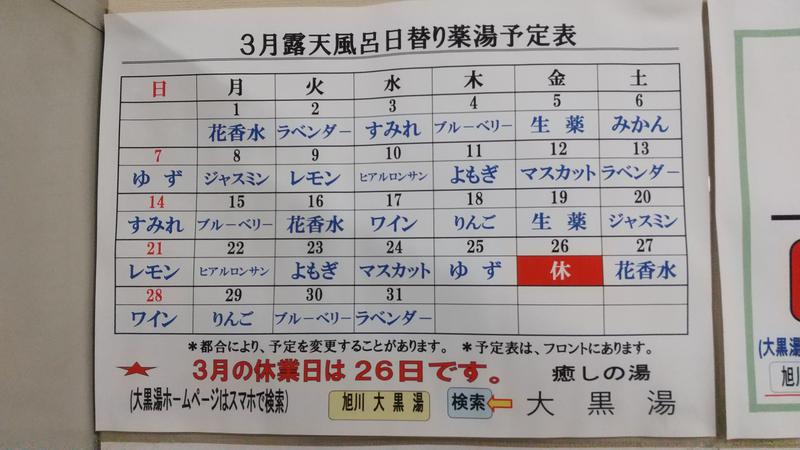 3月露天風呂日替り薬湯予定表
日 月 火 水 木 金 土
1 2 3 4 5 6
花香水 ラベンダー すみれ ブルーベリー 生薬 みかん
7 8 9 10 11 12 13
ゆず ジャスミン レモン ヒアルロンサン よもぎ マスカット ラベンダー
14 15 16 17 18 19 20
すみれ ブルーベリー 花香水 ワイン りんご 生薬 ジャスミン
21 22 23 24 25 26 27
レモン ヒアルロンサン よもぎ マスカット ゆず 休 花香水
28 29 30 31
ワイン りんご ブルーベリー ラベンダー
*都合により、予定を変更することがあります。 *予定表は、フロントにあります。
★ 3月の休業日は26日です。 癒しの湯
(大黒湯ホームページはスマホで検索) 旭川大黒湯 検索 ⇦ 大黒湯
(大黒湯
旭川